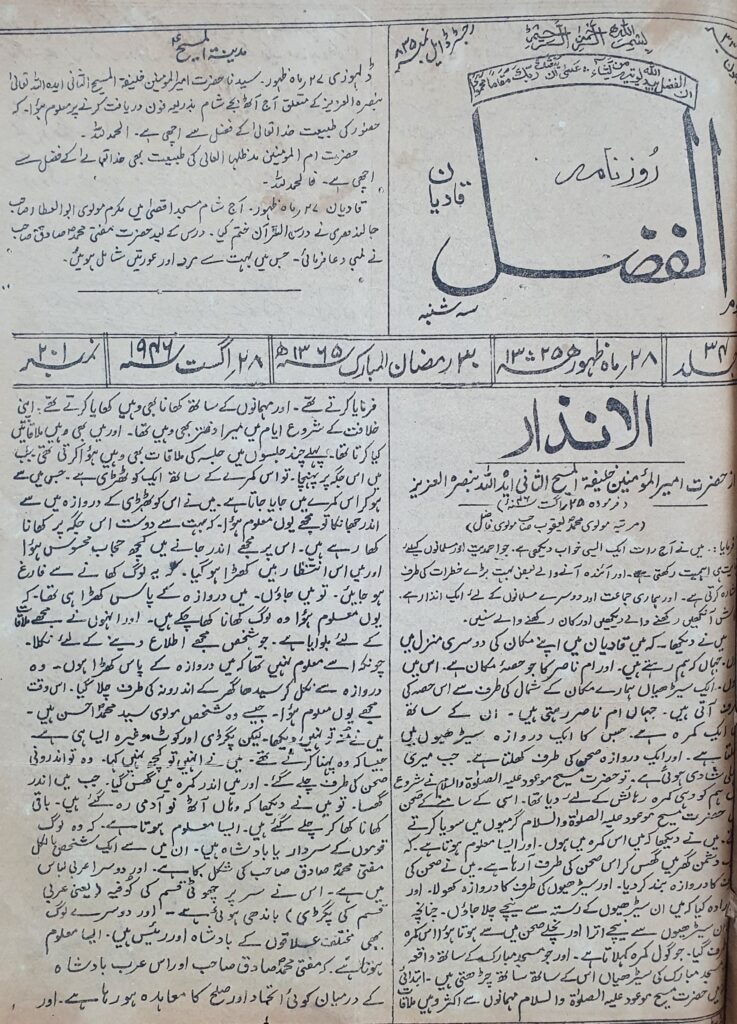 رجسٹرڈ ایل نمبر ۸۳۵
بسم اللہ الرحمن الرحیم
ان الفضل بید اللہ یوتیہ من یشاء عسیٰ ان یبعثک ربک مقاما محمودا
روزنامہ
الفضل
قادیان
سہ شنبہ
مدینۃ المسیح
ڈلہوزی ۲۷ ماہ ظہور۔ سیدنا حضرت امیر المومنین خلیفۃ المسیح الثانی ایدہ اللہ تعالیٰ
بنصرہ العزیز کے متعلق آج آٹھ بجے شام بذریعہ فون دریافت کرنے پر معلوم ہوا۔ کہ
حضور کی طبیعت خدا تعالیٰ کے فضل سے اچھی ہے۔ الحمد للہ۔
حضرت ام المومنین مدظلہا العالی کی طبیعت بھی خدا تعالیٰ کے فضل سے
اچھی ہے۔ فالحمد للہ۔
قادیان ۲۷ ماہ ظہور۔ آج شام مسجد اقصیٰ میں مکرم مولوی ابو العطاء صاحب
جالندھری نے درس القرآن ختم کیا۔ درس کے بعد حضرت مفتی محمد صادق صاحب
نے لمبی دعا فرمائی۔ جس میں بہت سے مرد اور عورتیں شامل ہوئیں۔
جلد ۳۴ | ۲۸ ماہ ظہور ۱۳۲۵ھ | ۳۰ رمضان المبارک ۱۳۶۵ھ | ۲۸ اگست ۱۹۴۶ | نمبر ۲۰۱
الانذار
از حضرت امیر المؤمنین خلیفۃ المسیح الثانی ایدہ اللہ بنصرہ العزیز
(فرمودہ ۲۵ اگست ۴۶ء)
(مرتبہ مولوی محمد یعقوب صاحب مولوی فاضل)
فرمایا:۔ میں نے آج رات ایک ایسی خواب دیکھی ہے۔ جو احمدیت اور مسلمانوں کیلئے
بہت بڑی اہمیت رکھتی ہے۔ اور آئندہ آنے والے بعض بہت بڑے خطرات کی طرف
اشارہ کرتی ہے۔ اور ہماری جماعت اور دوسرے مسلمانوں کے لئے ایک انذار ہے
کاش آنکھیں رکھنے والے دیکھیں اور کان رکھنے والے سنیں۔
میں نے دیکھا۔ کہ میں قادیان میں اپنے مکان کی دوسری منزل میں
ہوں۔ جہاں کہ ہم رہتے ہیں۔ اور ام ناصر کا جو حصۂ مکان ہے۔ اس میں
ہوں۔ ایک سیڑھیاں ہمارے مکان کے شمال کی طرف سے اس حصہ کی
طرف آتی ہیں۔ جہاں ام ناصر رہتی ہیں۔ ان کے ساتھ
ہی ایک کمرہ ہے۔ جس کا ایک دروازہ سیڑھیوں میں
کھلتا ہے۔ اور ایک دروازہ صحن کی طرف کھلتا ہے۔ جب میری
شادی ہوئی ہے۔ تو حضرت مسیح موعود علیہ الصلوٰۃ والسلام نے شروع
میں ہم کو وہی کمرہ رہائش کے لئے دیا تھا۔ اسی کے سامنے کے صحن
میں حضرت مسیح موعود علیہ الصلوٰۃ والسلام گرمیوں میں سویا کرتے
تھے۔ میں نے دیکھا کہ میں اس کمرہ میں ہوں۔ اور ایسا معلوم ہوتا ہے۔ کہ
دشمن گھر میں گھس کر اس صحن کی طرف آ رہا ہے۔ میں نے صحن کی
طرف کا دروازہ بند کر دیا۔ اور سیڑھیوں کی طرف کا دروازہ کھولا۔ اور
ارادہ کیا کہ میں ان سیڑھیوں کے رستہ سے نیچے چلا جاؤں۔ چنانچہ
ان سیڑھیوں سے نیچے اترا اور نچلے صحن میں سے ہوتا ہوا اس کمرہ
کی طرف گیا۔ جو گول کمرہ کہلاتا ہے۔ اور جو مسجد مبارک کے ساتھ واقعہ
ہے۔ مسجد مبارک کی سیڑھیاں اس کے ساتھ ساتھ چڑھتی ہیں۔ ابتدائی
ایام میں حضرت مسیح موعود علیہ الصلوٰۃ والسلام مہمانوں سے اکثر وہیں ملاقات
فرمایا کرتے تھے۔ اور مہمانوں کے ساتھ کھانا بھی وہیں کھایا کرتے تھے۔ اپنی
خلافت کے شروع ایام میں میرا دفتر بھی وہیں تھا۔ اور میں بھی وہیں ملاقاتیں
کیا کرتا تھا۔ پہلے چند جلسوں میں جلسہ کی ملاقات بھی وہیں ہوا کرتی تھی۔ جب
میں اس جگہ پر پہنچا۔ تو اس کمرے کے ساتھ ایک کوٹھڑی ہے۔ جس میں سے
ہو کر اس کمرے میں جایا جاتا ہے۔ میں نے اس کوٹھڑی کے دروازہ میں سے
اندر جھانکا تو مجھے یوں معلوم ہوا۔ کہ بہت سے دوست اس جگہ پر کھانا
کھا رہے ہیں۔ اس پر مجھے اندر جانے میں کچھ حجاب محسوس ہوا
اور میں اس انتظار میں کھڑا ہو گیا۔ کہ یہ لوگ کھانے سے فارغ
ہو جائیں۔ تو میں جاؤں۔ میں دروازہ کے پاس کھڑا ہی تھا۔ کہ
یوں معلوم ہوا وہ لوگ کھانا کھا چکے ہیں۔ اور انہوں نے مجھے ملاقات
کے لئے بلوایا ہے۔ جو شخص مجھے اطلاع دینے کے لئے نکلا۔
چونکہ اسے معلوم نہیں تھا کہ میں دروازہ کے پاس کھڑا ہوں۔ وہ
دروازہ سے نکل کر سیدھا گھر کے اندرونہ کی طرف چلا گیا۔ اس وقت
مجھے یوں معلوم ہوا۔ جیسے وہ شخص مولوی سید محمد احسن ہیں۔
میں نے منہ تو نہیں دیکھا۔ لیکن پگڑی اور کوٹ وغیرہ ایسا ہی ہے
جیسا کہ وہ پہنا کرتے تھے۔ میں نے انہیں تو کچھ نہیں کہا۔ وہ تو اندرونی
صحن کی طرف چلے گئے۔ اور میں اندر کمرہ میں گھس گیا۔ جب میں اندر
گھسا۔ تو میں نے دیکھا کہ وہاں آٹھ نو آدمی رہ گئے ہیں۔ باقی
کھانا کھا کر چلے گئے ہیں۔ ایسا معلوم ہوتا ہے۔ کہ وہ لوگ
قوموں کے سردار یا بادشاہ ہیں۔ ان میں سے ایک شخص بالکل
مفتی محمد صادق صاحب کی شکل کا ہے۔ اور دوسرا عربی لباس
میں ہے۔ اس نے سر پر چھوٹی قسم کی کوفیہ (یعنی عربی
قسم کی پگڑی) باندھی ہوئی ہے۔ اور دوسرے لوگ
بھی مختلف علاقوں کے بادشاہ اور رئیس ہیں۔ ایسا معلوم
ہوتا ہے۔ کہ مفتی محمد صادق صاحب اور اس عرب بادشاہ
کے درمیان کوئی اتحاد اور صلح کا معاہدہ ہو رہا ہے۔ اور